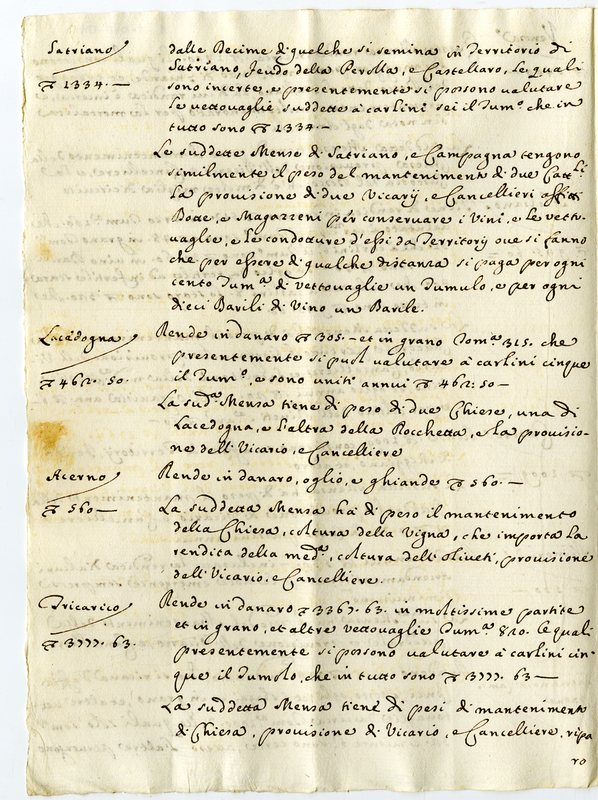 Satriano
₯ 1334. —
dalle Decime di quelche si semina in Territorio di
Satriano, feudo della Perolla, e Castellaro, le quali
sono incerte, e presentemente si possono valutare
le vettovaglie suddette à carlini sei il Tum.º che in
tutto sono ₯ 1334. —
Le suddette Mense di Satriano, e Campagna tengono
similmente il peso del mantenimento di due Catt.li
La provisione di due Vicarij, e Cancellieri affitti
Botte, e Magazzeni per conservare i Vini, e le vetto-
vaglie, e le condotture d'essi da Territorij ove si fanno
che per essere di qualche distanza si paga per ogni
cento Tum.a di vettovaglie un Tumulo, e per ogni
dieci Barili di Vino un Barile.
Lacedogna
₯ 462. 50.
Rende in danaro ₯ 305. — et in grano Tom.a 315. che
presentemente si puol valutare à carlini cinque
il Tum.º, e sono uniti annui ₯ 462: 50 —
La sud.a Mensa tiene di peso di due Chiese, una di
Lacedogna, e l'altra della Rocchetta, e la provisio-
ne dell' Vicario, e Cancelliere
Acerno
₯ 560 —
Rende in danaro, oglio, e ghiande ₯ 560. —
La suddetta Mensa hà di peso il mantenimento
della Chiesa, coltura della Vigna, che importa la
rendita della med.a, coltura dell' oliveti, provisione
dell' Vicario, e Cancelliere.
Tricarico
₯ 3777. 63.
Rende in danaro ₯ 3367. 63. in moltissime partite
et in grano, et altre vettovaglie Tum.a 820. le quali
presentemente si possono valutare à carlini cin-
que il Tumolo, che in tutto sono ₯ 3777. 63 —
La suddetta Mensa tiene di pesi di mantenimento
di Chiesa, provisione di Vicario, e Cancelliere, ripa
ro